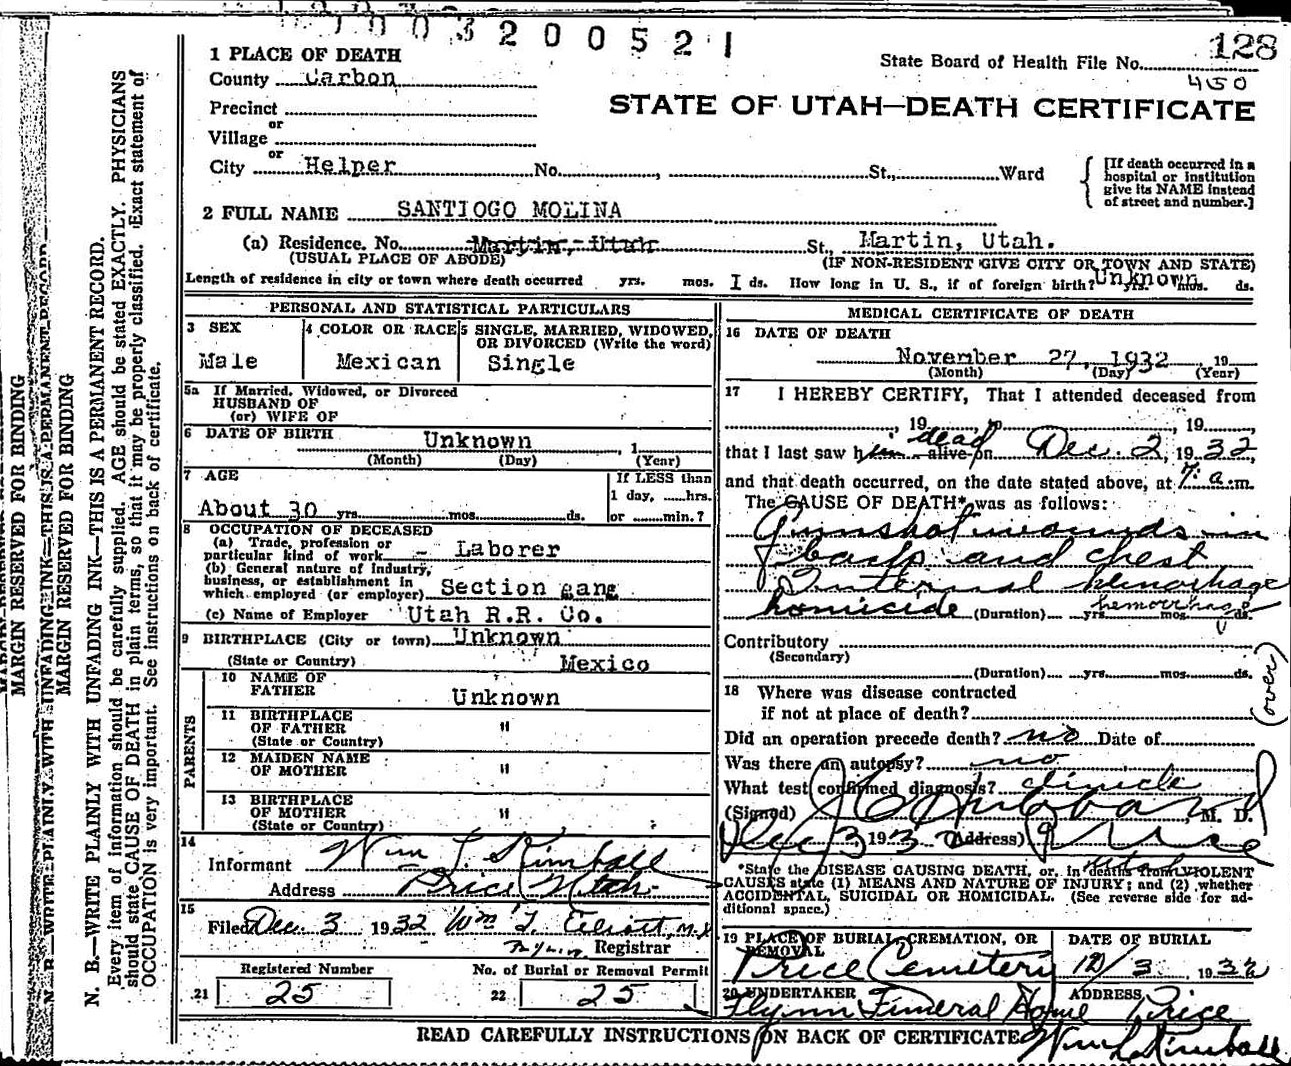 1003200521
128
State Board of Health File No.
450
1 PLACE OF DEATH
County Carbon
STATE OF UTAH—DEATH CERTIFICATE
Precinct
or
Village
or
City Helper No. , St., Ward
[If death occurred in a
hospital or institution
give its NAME instead
of street and number.]
2 FULL NAME SANTIOGO MOLINA
(a) Residence. No. Martin, Utah St., Martin, Utah.
(USUAL PLACE OF ABODE) (IF NON-RESIDENT GIVE CITY OR TOWN AND STATE)
Length of residence in city or town where death occurred yrs. mos. 1 ds. How long in U. S., if of foreign birth? Unknown yrs. mos. ds.
PERSONAL AND STATISTICAL PARTICULARS
3 SEX
Male
4 COLOR OR RACE
Mexican
5 SINGLE, MARRIED, WIDOWED,
OR DIVORCED (Write the word)
Single
5a If Married, Widowed, or Divorced
HUSBAND OF
(or) WIFE OF
6 DATE OF BIRTH Unknown , 1
(Month) (Day) (Year)
7 AGE
About 30 yrs. mos. ds.
If LESS than
1 day, hrs.
or min.?
8 OCCUPATION OF DECEASED
(a) Trade, profession or
particular kind of work - Laborer
(b) General nature of industry,
business, or establishment in
which employed (or employer) Section gang
(c) Name of Employer Utah R.R. Co.
9 BIRTHPLACE (City or town) Unknown
(State or Country) Mexico
PARENTS
10 NAME OF
FATHER Unknown
11 BIRTHPLACE
OF FATHER "
(State or Country)
12 MAIDEN NAME
OF MOTHER "
13 BIRTHPLACE
OF MOTHER "
(State or Country)
14
Informant Wm L. Kimball
Address Price Utah
15
Filed Dec. 3 1932 Wm T. Elliott, M.D.
Registrar
Registered Number
21 25
No. of Burial or Removal Permit
22 25
MEDICAL CERTIFICATE OF DEATH
16 DATE OF DEATH
November 27, 1932, 19
(Month) (Day) (Year)
17 I HEREBY CERTIFY, That I attended deceased from
, 19 to , 19 ,
that I last saw him dead alive on Dec. 2, 1932,
and that death occurred, on the date stated above, at 7. a.m.
The CAUSE OF DEATH* was as follows:
Gunshot wounds in
back and chest
Internal hemorhage
homicide (Duration) yrs. hemorrhage mos. ds.
Contributory
(Secondary)
(Duration) yrs. mos. ds.
(over)
18 Where was disease contracted
if not at place of death?
Did an operation precede death? no Date of
Was there an autopsy? no
What test confirmed diagnosis? clinicle
(Signed) J C Hubbard, M. D.
Dec 3 1932 (Address) Price
Utah
*State the DISEASE CAUSING DEATH, or, in deaths from VIOLENT
CAUSES state (1) MEANS AND NATURE OF INJURY; and (2) whether
ACCIDENTAL, SUICIDAL OR HOMICIDAL. (See reverse side for ad-
ditional space.)
19 PLACE OF BURIAL, CREMATION, OR
REMOVAL
Price Cemetery
DATE OF BURIAL
12/3, 1932
20 UNDERTAKER
Flynn Funeral Home
ADDRESS
Price
Wm L Kimball
READ CAREFULLY INSTRUCTIONS ON BACK OF CERTIFICATE
MARGIN RESERVED FOR BINDING
MARGIN RESERVED FOR BINDING
N. B.—WRITE PLAINLY WITH UNFADING INK—THIS IS A PERMANENT RECORD.
N. B.—WRITE PLAINLY WITH UNFADING INK—THIS IS A PERMANENT RECORD.
Every item of information should be carefully supplied. AGE should be stated EXACTLY. PHYSICIANS
should state CAUSE OF DEATH in plain terms, so that it may be properly classified. Exact statement of
OCCUPATION is very important. See instructions on back of certificate.